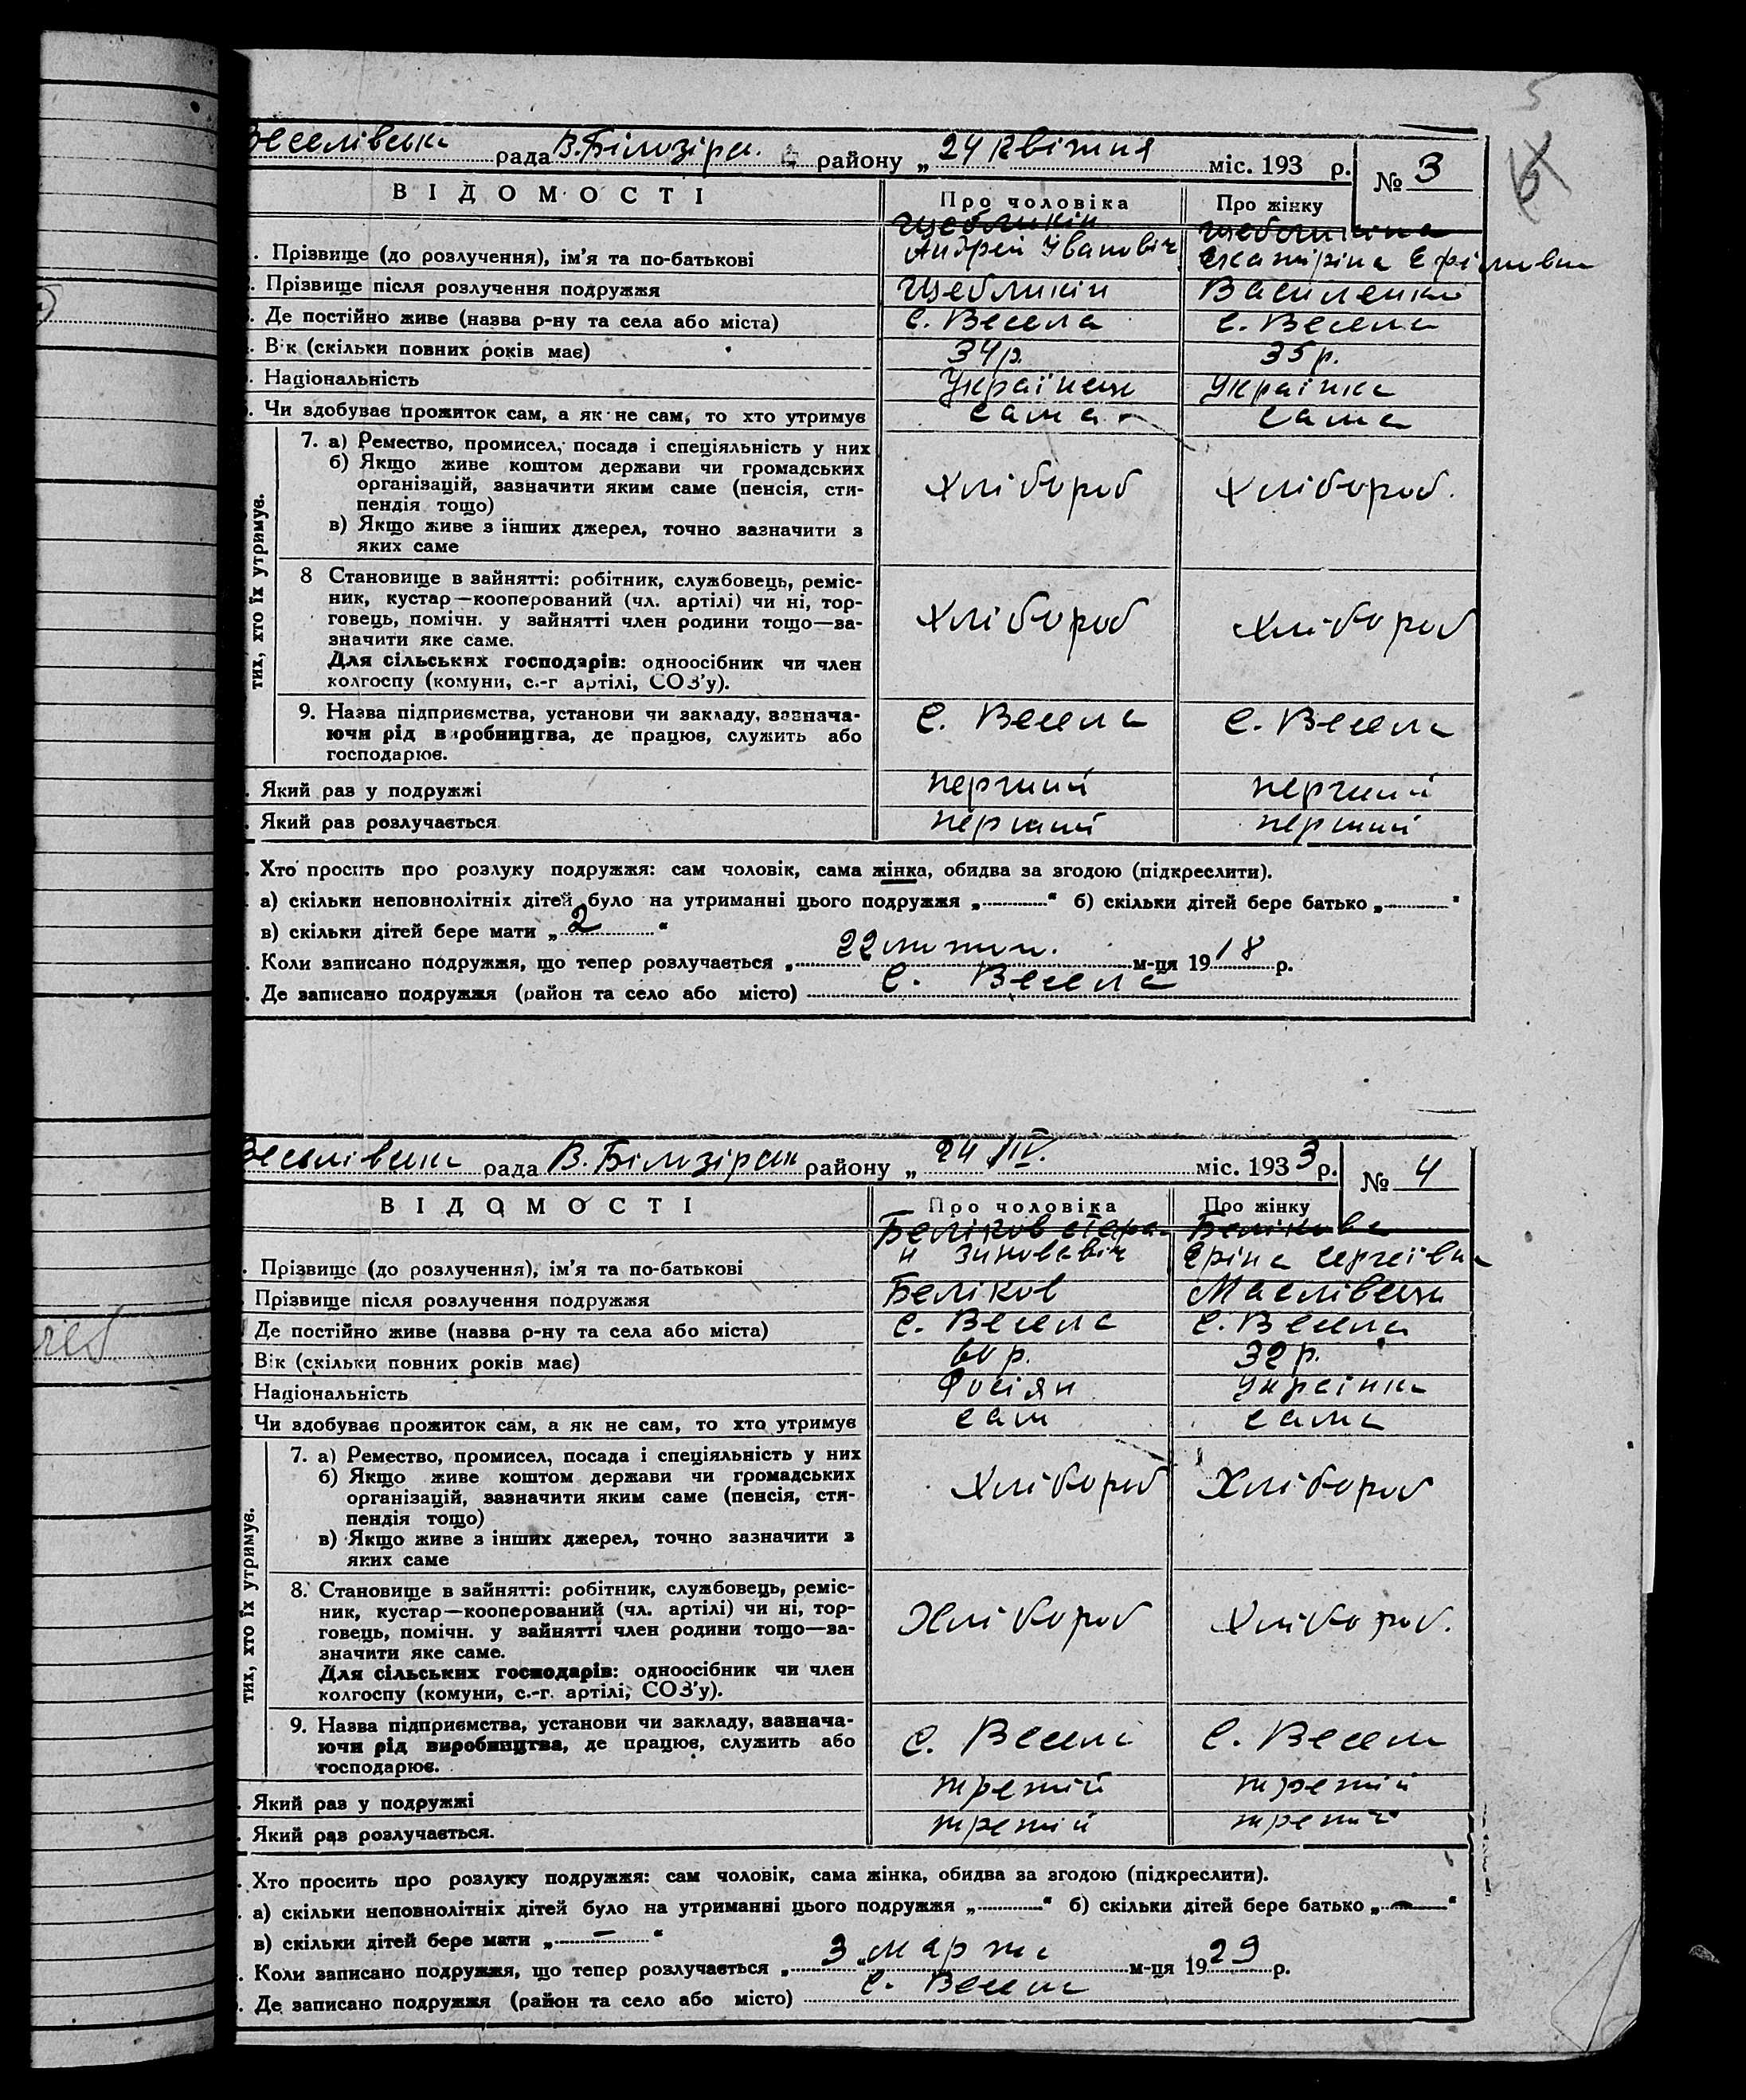 5
6
Веселівська рада В. Білозірсь району „ 24 Квітня міс. 193 р. № 3
ВІДОМОСТІ
Про чоловіка
Про жінку
Щебликін Щебликіна
Прізвище (до розлучення), ім'я та по-батькові Андрей Іванович Екатиріна
Прізвище після розлучення подружжя Щебликін Василенко
Де постійно живе (назва р-ну та села або міста) с. Весела с. Весела
Вік (скільки повних років має) 34 р. 35 р.
Національність Українец Українка
Чи здобуває прожиток сам, а як не сам, то хто утримує сама сама
тих, хто їх утримує.
7. а) Ремество, промисел, посада і спеціяльність у них
б) Якщо живе коштом держави чи громадських
організацій, зазначити яким саме (пенсія, сти- Хлібороб Хлібороб.
пендія тощо)
в) Якщо живе з інших джерел, точно зазначити з
яких саме
8 Становище в зайнятті: робітник, службовець, реміс-
ник, кустар—кооперований (чл. артілі) чи ні, тор-
говець, помічн. у зайнятті член родини тощо—за- Хлібороб Хлібороб
значити яке саме.
Для сільських господарів: одноосібник чи член
колгоспу (комуни, с.-г артілі, СОЗ'у).
9. Назва підприємства, установи чи закладу, зазнача- с. Весела с. Весела
ючи рід виробництва, де працює, служить або
господарює.
Який раз у подружжі перший перший
Який раз розлучається перший перший
Хто просить про розлуку подружжя: сам чоловік, сама жінка, обидва за згодою (підкреслити).
а) скільки неповнолітніх дітей було на утриманні цього подружжя „ “ б) скільки дітей бере батько „ “
в) скільки дітей бере мати „ 2 “
Коли записано подружжя, що тепер розлучається „ 22 м-ця 1918 р.
Де записано подружжя (район та село або місто) с. Весела
Веселівська рада В. Білозірськ району „ 24/IV. міс. 1933 р. № 4
ВІДОМОСТІ
Про чоловіка
Про жінку
Беліков Белікова
Прізвище (до розлучення), ім'я та по-батькові Зиновавіч Еріна Сергеївна
Прізвище після розлучення подружжя Беліков
Де постійно живе (назва р-ну та села або міста) с. Весела с. Весела
Вік (скільки повних років має) 60 р. 32 р.
Національність Росіян Українка
Чи здобуває прожиток сам, а як не сам, то хто утримує сам сама
тих, хто їх утримує.
7. а) Ремество, промисел, посада і спеціяльність у них
б) Якщо живе коштом держави чи громадських
організацій, зазначити яким саме (пенсія, сти- Хлібороб Хлібороб
пендія тощо)
в) Якщо живе з інших джерел, точно зазначити з
яких саме
8. Становище в зайнятті: робітник, службовець, реміс-
ник, кустар—кооперований (чл. артілі) чи ні, тор-
говець, помічн. у зайнятті член родини тощо—за- Хлібороб Хлібороб.
значити яке саме.
Для сільських господарів: одноосібник чи член
колгоспу (комуни, с.-г. артілі, СОЗ'у).
9. Назва підприємства, установи чи закладу, зазнача-
ючи рід виробництва, де працює, служить або с. Весела с. Весела
господарює.
Який раз у подружжі третій третій
Який раз розлучається. третій третій
Хто просить про розлуку подружжя: сам чоловік, сама жінка, обидва за згодою (підкреслити).
а) скільки неповнолітніх дітей було на утриманні цього подружжя „ “ б) скільки дітей бере батько „ — “
в) скільки дітей бере мати „ — “
Коли записано подружжя, що тепер розлучається „ 3 „ Марта м-ця 1929 р.
Де записано подружжя (район та село або місто) с. Весела